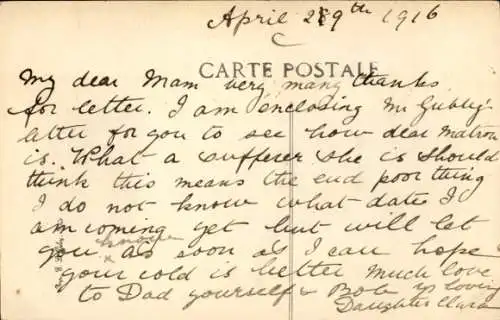 April 29th 1916
CARTE POSTALE
My dear Mam very many thanks
for letter. I am enclosing Mr
letter for you to see how dear Matron
is. What a sufferer she is should
think this means the end poor thing
I do not know what date I
am coming yet but will let
you know as soon as I can hope
your cold is better much love
to Dad yourself & Bob yr loving
Daughter Clara